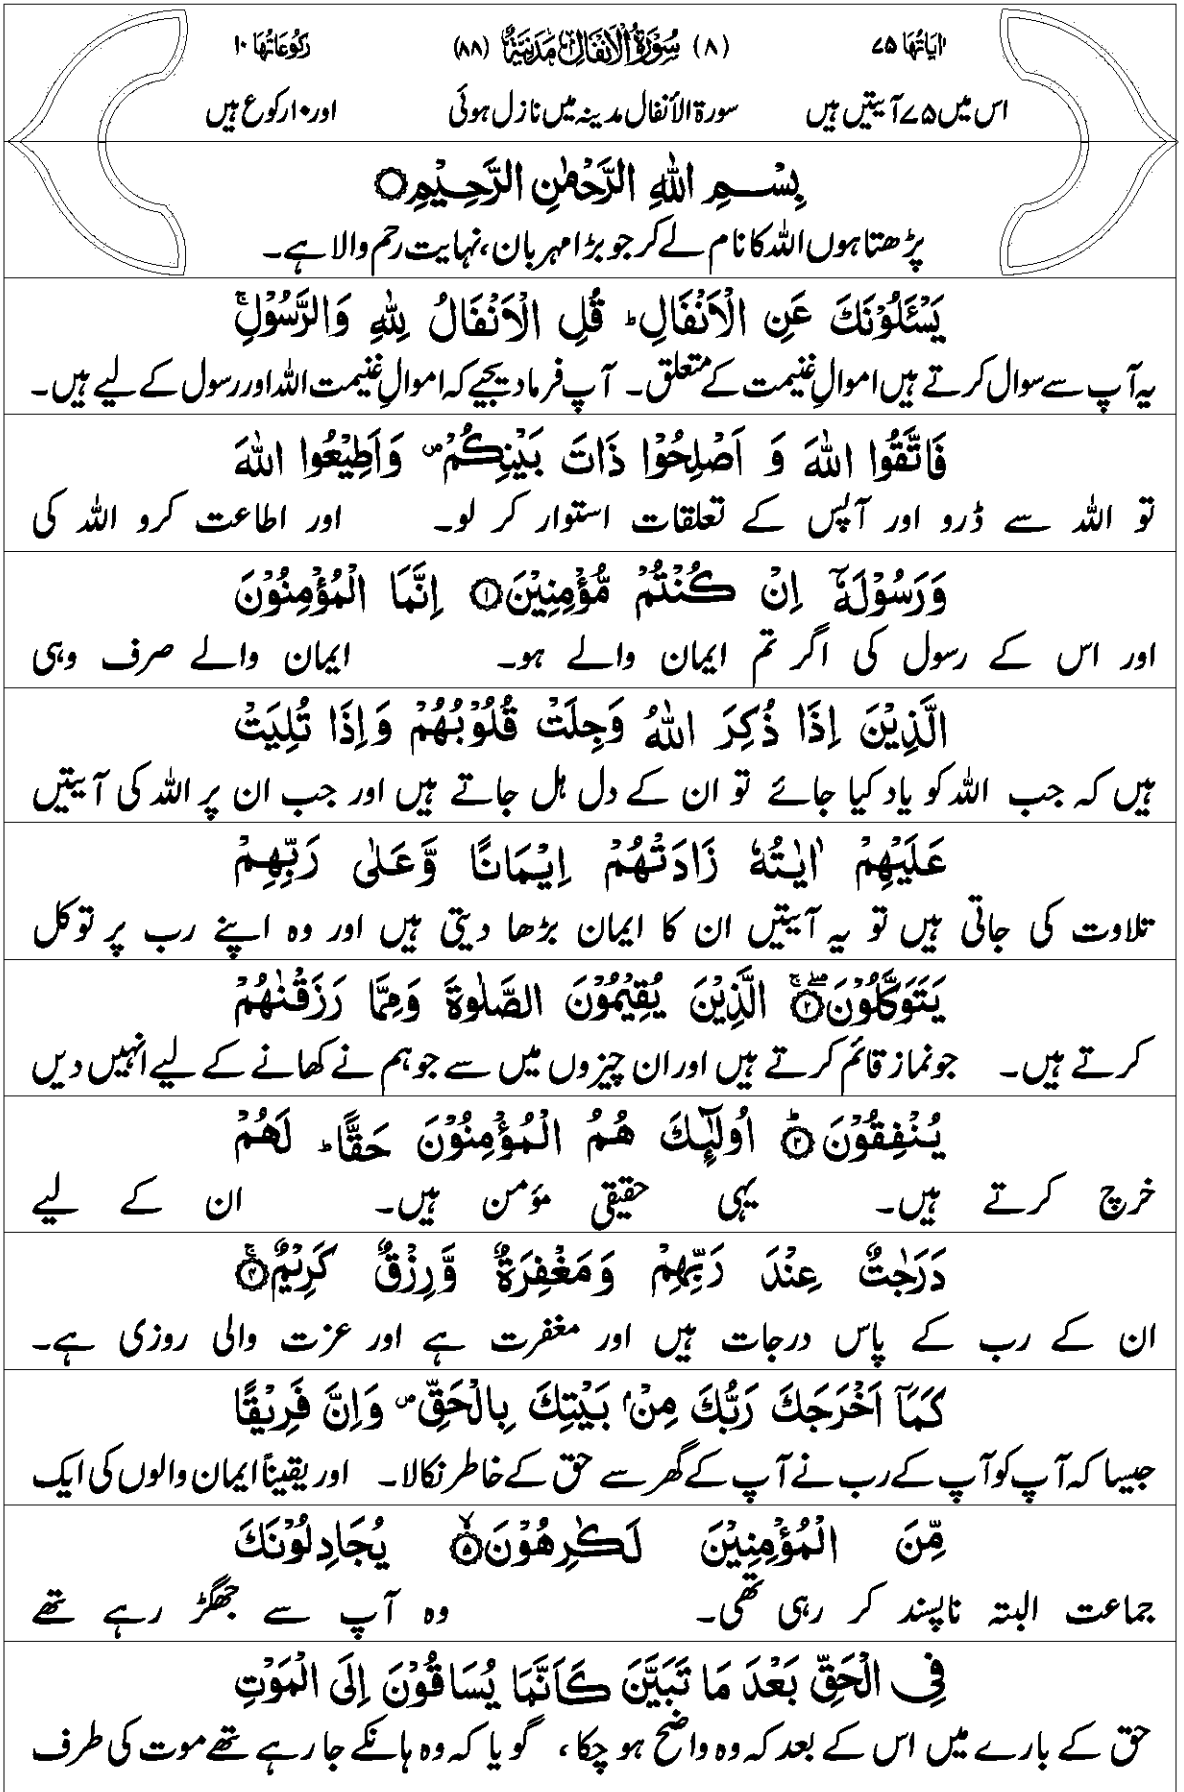 اٰیَاتُهَا ۷۵ (۸) سُوْرَةُ الْاَنْفَالِ مَدَنِیَّةٌ (۸۸) رُکُوْعَاتُهَا ۱۰
اس میں ۷۵ آیتیں ہیں سورۃ الأنفال مدینہ میں نازل ہوئی اور ۱۰ رکوع ہیں
بِسْمِ اللّٰهِ الرَّحْمٰنِ الرَّحِیْمِ○
پڑھتا ہوں اللہ کا نام لے کر جو بڑا مہربان، نہایت رحم والا ہے۔
یَسْـَٔلُوْنَكَ عَنِ الْاَنْفَالِ ؕ قُلِ الْاَنْفَالُ لِلّٰهِ وَالرَّسُوْلِ ۚ
یہ آپ سے سوال کرتے ہیں اموالِ غنیمت کے متعلق۔ آپ فرما دیجیے کہ اموالِ غنیمت اللہ اور رسول کے لیے ہیں۔
فَاتَّقُوا اللّٰهَ وَ اَصْلِحُوْا ذَاتَ بَیْنِكُمْ ۪ وَاَطِیْعُوا اللّٰهَ
تو اللہ سے ڈرو اور آپس کے تعلقات استوار کر لو۔ اور اطاعت کرو اللہ کی
وَرَسُوْلَهٗۤ اِنْ كُنْتُمْ مُّؤْمِنِیْنَ ۝۱ اِنَّمَا الْمُؤْمِنُوْنَ
اور اس کے رسول کی اگر تم ایمان والے ہو۔ ایمان والے صرف وہی
الَّذِیْنَ اِذَا ذُكِرَ اللّٰهُ وَجِلَتْ قُلُوْبُهُمْ وَاِذَا تُلِیَتْ
ہیں کہ جب اللہ کو یاد کیا جائے تو ان کے دل ہل جاتے ہیں اور جب ان پر اللہ کی آیتیں
عَلَیْهِمْ اٰیٰتُهٗ زَادَتْهُمْ اِیْمَانًا وَّعَلٰی رَبِّهِمْ
تلاوت کی جاتی ہیں تو یہ آیتیں ان کا ایمان بڑھا دیتی ہیں اور وہ اپنے رب پر توکل
یَتَوَكَّلُوْنَ ۝۲ۚۖ الَّذِیْنَ یُقِیْمُوْنَ الصَّلٰوةَ وَمِمَّا رَزَقْنٰهُمْ
کرتے ہیں۔ جو نماز قائم کرتے ہیں اور ان چیزوں میں سے جو ہم نے کھانے کے لیے انہیں دیں
یُنْفِقُوْنَ ۝۳ؕ اُولٰٓىِٕكَ هُمُ الْمُؤْمِنُوْنَ حَقًّا ؕ لَهُمْ
خرچ کرتے ہیں۔ یہی حقیقی مؤمن ہیں۔ ان کے لیے
دَرَجٰتٌ عِنْدَ رَبِّهِمْ وَمَغْفِرَةٌ وَّرِزْقٌ كَرِیْمٌ ۝۴ۚ
ان کے رب کے پاس درجات ہیں اور مغفرت ہے اور عزت والی روزی ہے۔
كَمَاۤ اَخْرَجَكَ رَبُّكَ مِنْۢ بَیْتِكَ بِالْحَقِّ ۪ وَاِنَّ فَرِیْقًا
جیسا کہ آپ کو آپ کے رب نے آپ کے گھر سے حق کے خاطر نکالا۔ اور یقیناً ایمان والوں کی ایک
مِّنَ الْمُؤْمِنِیْنَ لَكٰرِهُوْنَ ۝۵ۙ یُجَادِلُوْنَكَ
جماعت البتہ ناپسند کر رہی تھی۔ وہ آپ سے جھگڑ رہے تھے
فِی الْحَقِّ بَعْدَ مَا تَبَیَّنَ كَاَنَّمَا یُسَاقُوْنَ اِلَی الْمَوْتِ
حق کے بارے میں اس کے بعد کہ وہ واضح ہو چکا، گویا کہ وہ ہانکے جا رہے تھے موت کی طرف